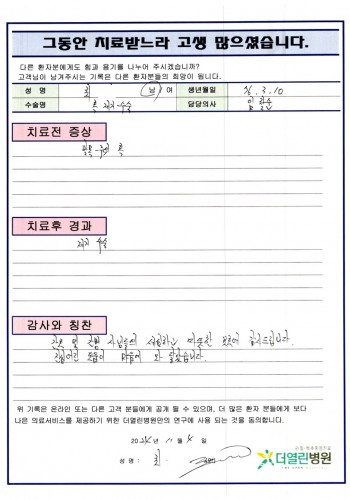 그동안 치료받느라 고생 많으셨습니다.
다른 환자분에게도 힘과 용기를 나누어 주시겠습니까?
고객님이 남겨주시는 기록은 다른 환자분들의 희망이 됩니다.
성 명 최 남 여 생년월일 3.10
수술명 혹 제거 수술 담당의사
치료전 증상
혹
치료후 경과
제거 수술
감사와 칭찬
간호 및 감사드립니다.
모습이 마음에 와 닿았습니다.
위 기록은 온라인 또는 다른 고객 분들에게 공개 될 수 있으며, 더 많은 환자 분들에게 보다
나은 의료서비스를 제공하기 위한 더열린병원만의 연구에 사용 되는 것을 동의합니다.
2024년 11월 4일
성 명 : 최
더열린병원